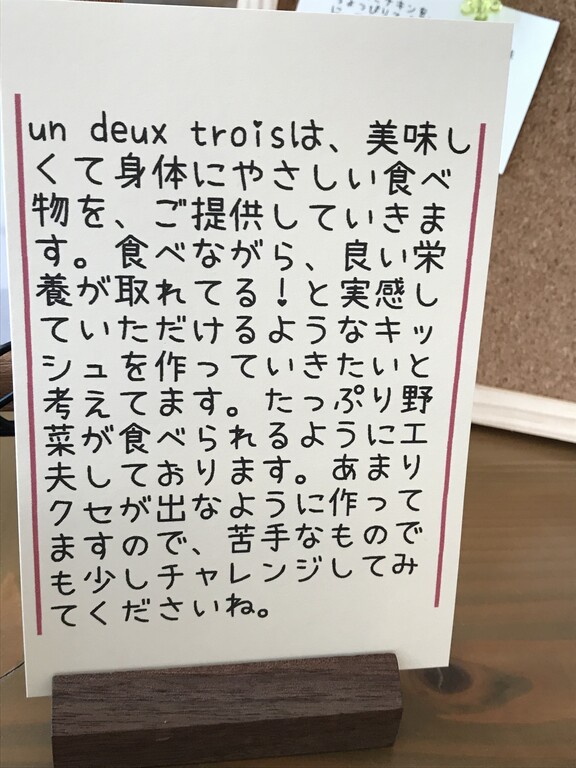 un deux troisは、美味し
くて身体にやさしい食べ
物を、ご提供していきま
す。食べながら、良い栄
養が取れてる!と実感し
ていただけるようなキッ
シュを作っていきたいと
考えてます。たっぷり野
菜が食べられるように工
夫しております。あまり
クセが出なように作って
ますので、苦手なもので
も少しチャレンジしてみ
てくださいね。